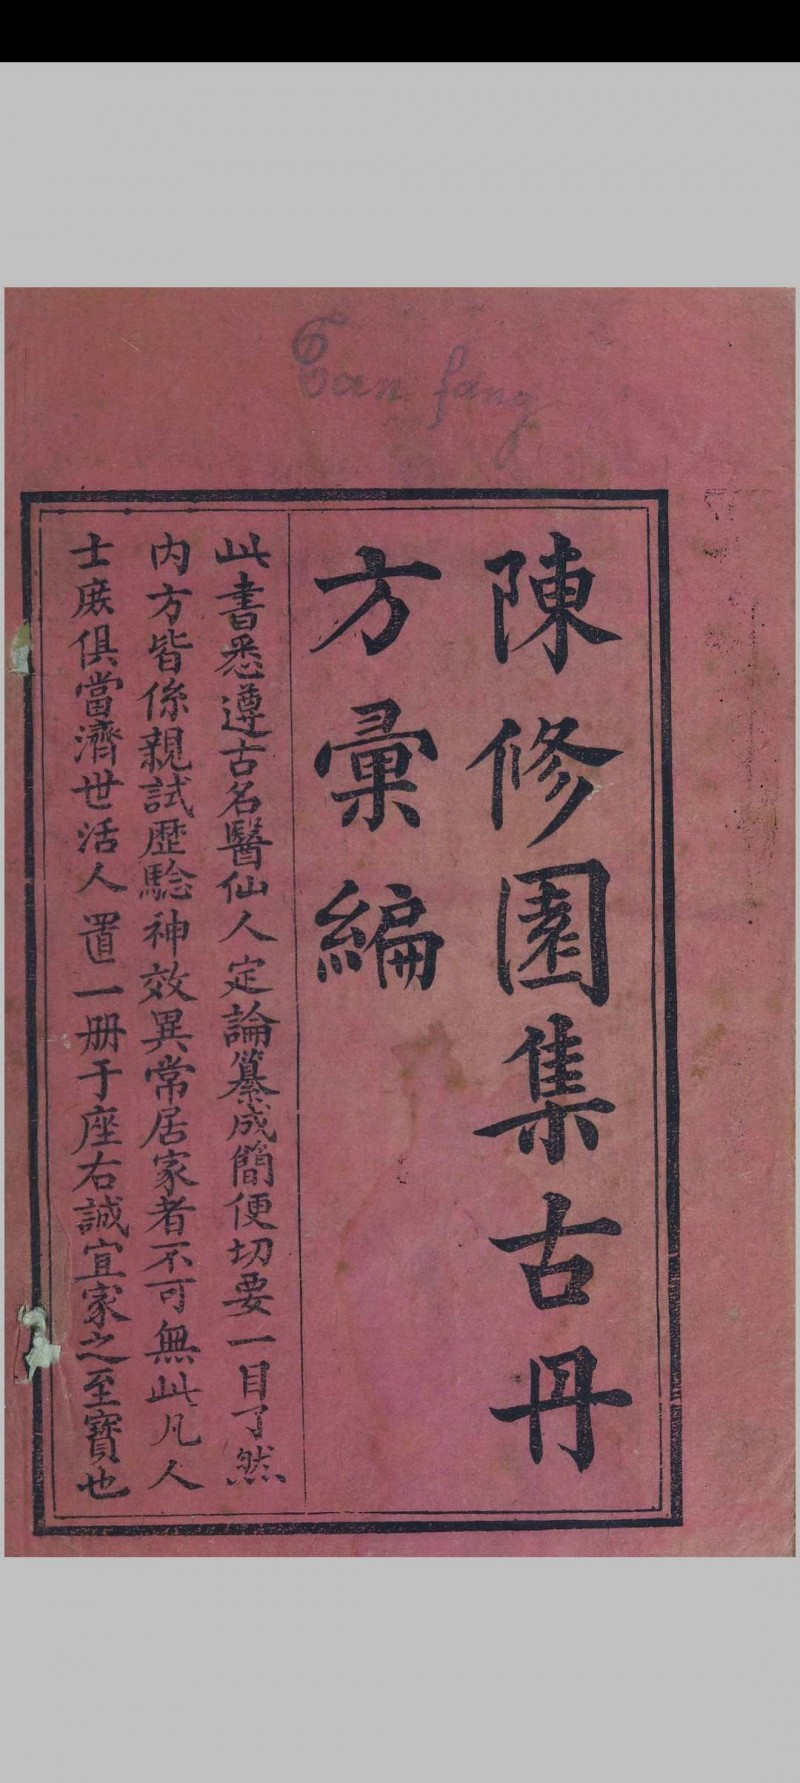 Tan fang
陳修園集古丹
方彙編
此書悉遵古名醫仙人定論纂成簡便切要一目了然
內方皆係親試歷驗神效異常居家者不可無此凡人
士庶俱當濟世活人置一册于座右誠宜家之至寶也